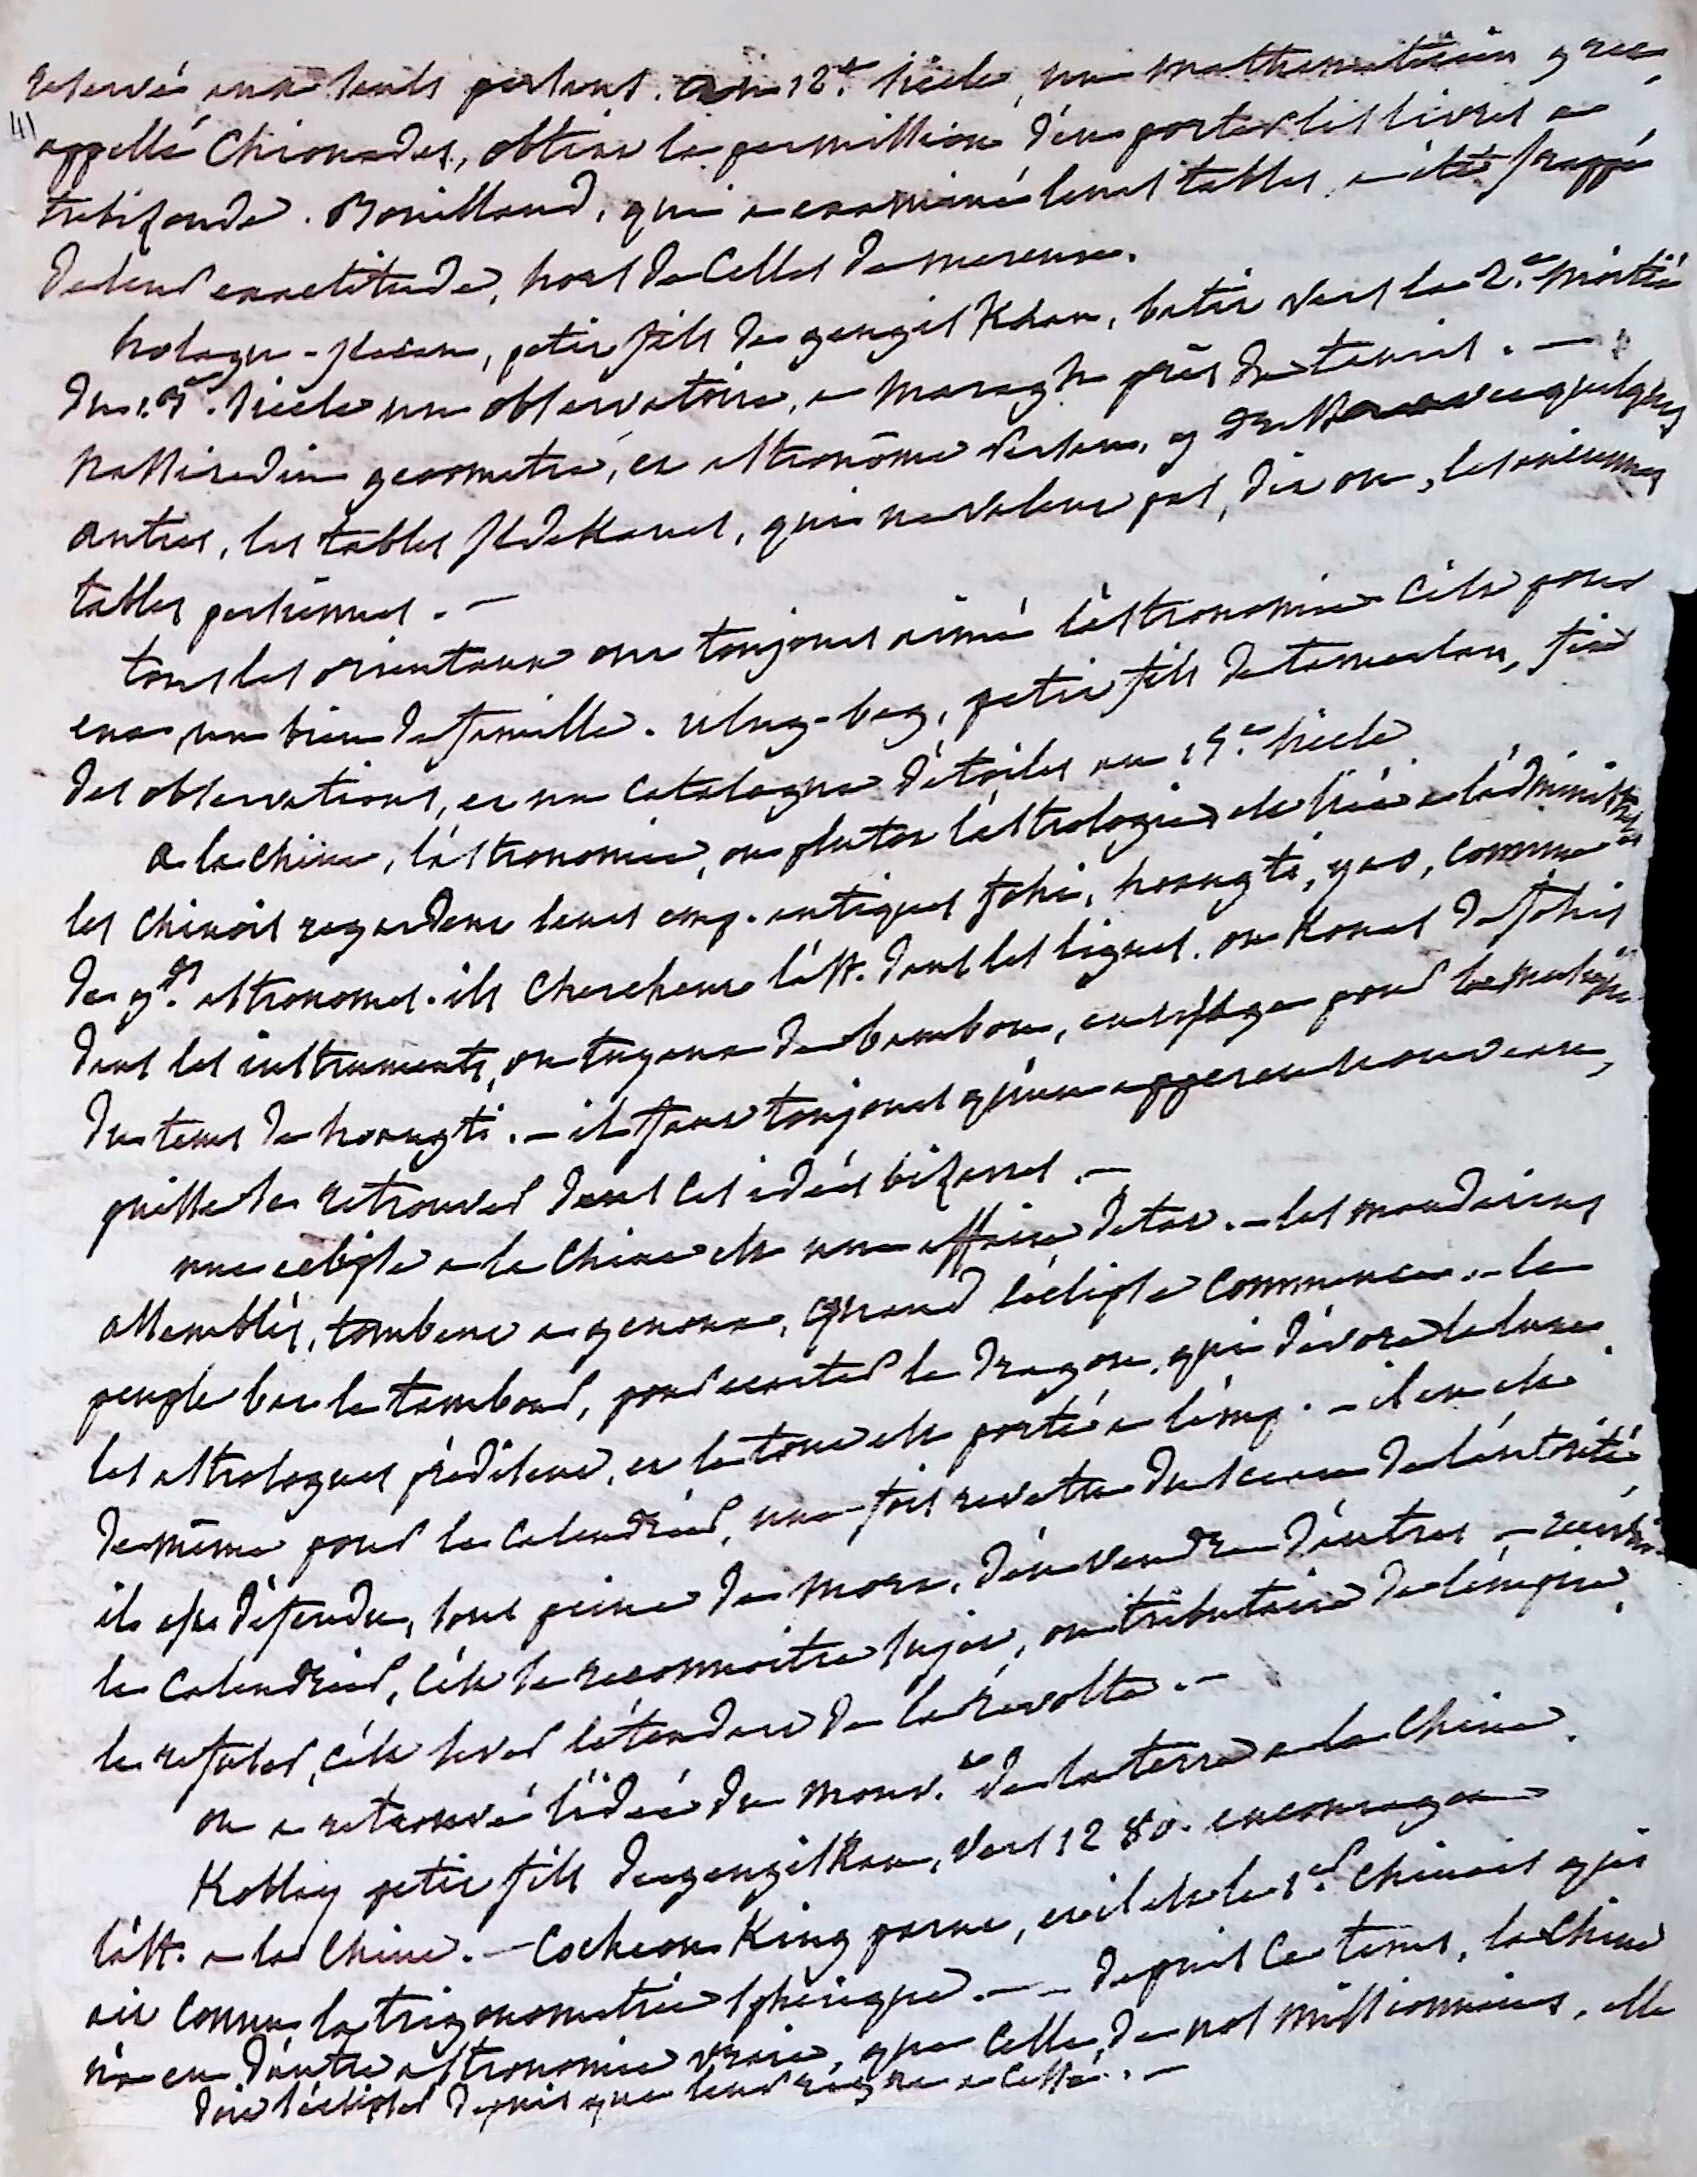 reservé aux seuls persans. Au 12.e siècle, un mathematicien grec,
41
appellé Chioniades, obtint la permission d'emporter les livres a
trebizonde. Bouilland, qui a examiné leurs tables, a été frappé
de leur exactitude, hors de celles de mercure.
holagu-ilecan, petit fils de gengis Khan, batit vers la 2.e moitié
du 13.e siècle un observatoire, a maragh près de tauris. —
Nassiredin geometre, et astronôme persan, y dressa avec quelques
autres, les tables ildekanes, qui ne valent pas, dit on, les anciennes
tables persiennes. —
tous les orientaux ont toujours aimé l'astronomie c'est pour
eux, un bien de famille. ulug-beg, petit fils de tamerlan, fit
des observations, et un catalogue d'étoiles au 15.e siècle
a la chine, l'astronomie, ou plutot l'astrologie, est liée a l'administrat.
les chinois regardent leurs emp. antiques fohi, hoangti, yao, comme
de g.ds astronomes. ils cherchent l'ast. dans les lignes, ou Koua de fohi
dans les instruments, ou tuyaux de bambou, en usage pour la musique
du tems de hoangti. — il faut toujours qu'un apperçu nouveau,
puisse se retrouver dans ces idées bizarres. —
une eclipse a la chine est une affaire d'etat. — les mandarins
assemblés, tombent a genoux, quand l'éclipse commence. — le
peuple bat le tambour, pour ecarter le dragon, qui dévore la lune
les astrologues prédisent, et le tout est porté a l'emp. — il en est
de même pour le calendrier, une fois revettu du sceau de l'autorité
il est défendu, sous peine de mort, d'en vendre d'autres — recevoir
le calendrier, c'est se reconnoitre sujet, ou tributaire de l'empire,
le refuser, c'est lever l'étendart de la révolte. —
on a retrouvé l'idée du mouv.t de la terre a la chine.
Koblay petit fils de gengiskan, vers 1280. encouragea
l'ast. a la chine. — Cocheou King parut, et il est le 1.er chinois qui
ait connu la trigonometrie sphérique. — — depuis ce tems, la chine
n'a eu d'autre astronomie vraie, que celle de nos missionnaires, elle
doit s'éclipser depuis que leur règne a cessé. —